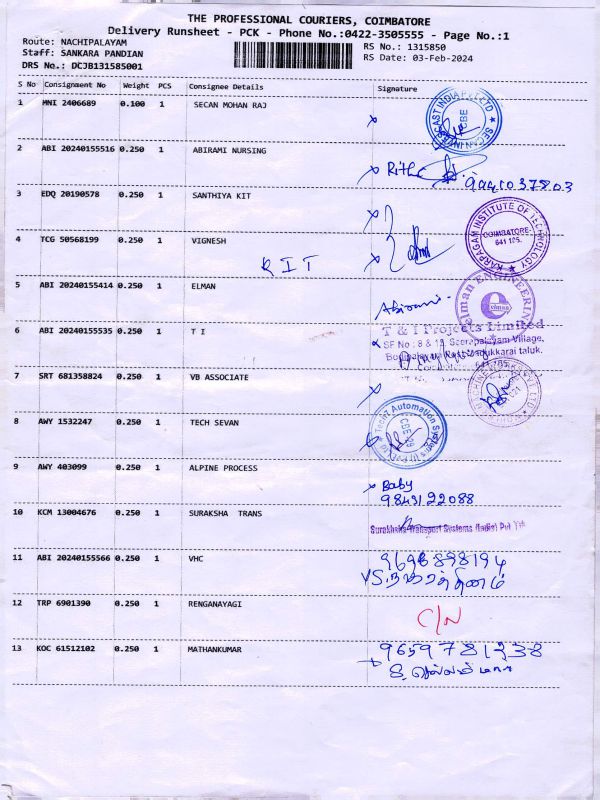 THE PROFESSIONAL COURIERS, COIMBATORE
Delivery Runsheet - PCK - Phone No.:0422-3505555 - Page No.:1
Route: NACHIPALAYAM
Staff: SANKARA PANDIAN
DRS No.: DCJB131585001
RS No.: 1315850
RS Date: 03-Feb-2024
S No Consignment No Weight PCS Consignee Details Signature
1 MNI 2406689 0.100 1 SECAN MOHAN RAJ
2 ABI 20240155516 0.250 1 ABIRAMI NURSING
3 EDQ 20190578 0.250 1 SANTHIYA KIT
KARPAGAM INSTITUTE OF TECHNOLOGY
COIMBATORE-
641 105.
4 TCG 50568199 0.250 1 VIGNESH
KIT
5 ABI 20240155414 0.250 1 ELMAN
Abirami
Elman ENGINEERING
6 ABI 20240155535 0.250 1 T I
T & I Projects Limited
Madukkarai taluk.
7 SRT 681358824 0.250 1 VB ASSOCIATE
8 AWY 1532247 0.250 1 TECH SEVAN
Tech7 Automation Systems
CBE
9 AWY 403099 0.250 1 ALPINE PROCESS
Baby
9843122088
10 KCM 13004676 0.250 1 SURAKSHA TRANS
Suraksha Transport Systems (India) Pvt Ltd
11 ABI 20240155566 0.250 1 VHC
12 TRP 6901390 0.250 1 RENGANAYAGI
C/N
13 KOC 61512102 0.250 1 MATHANKUMAR
9659781338